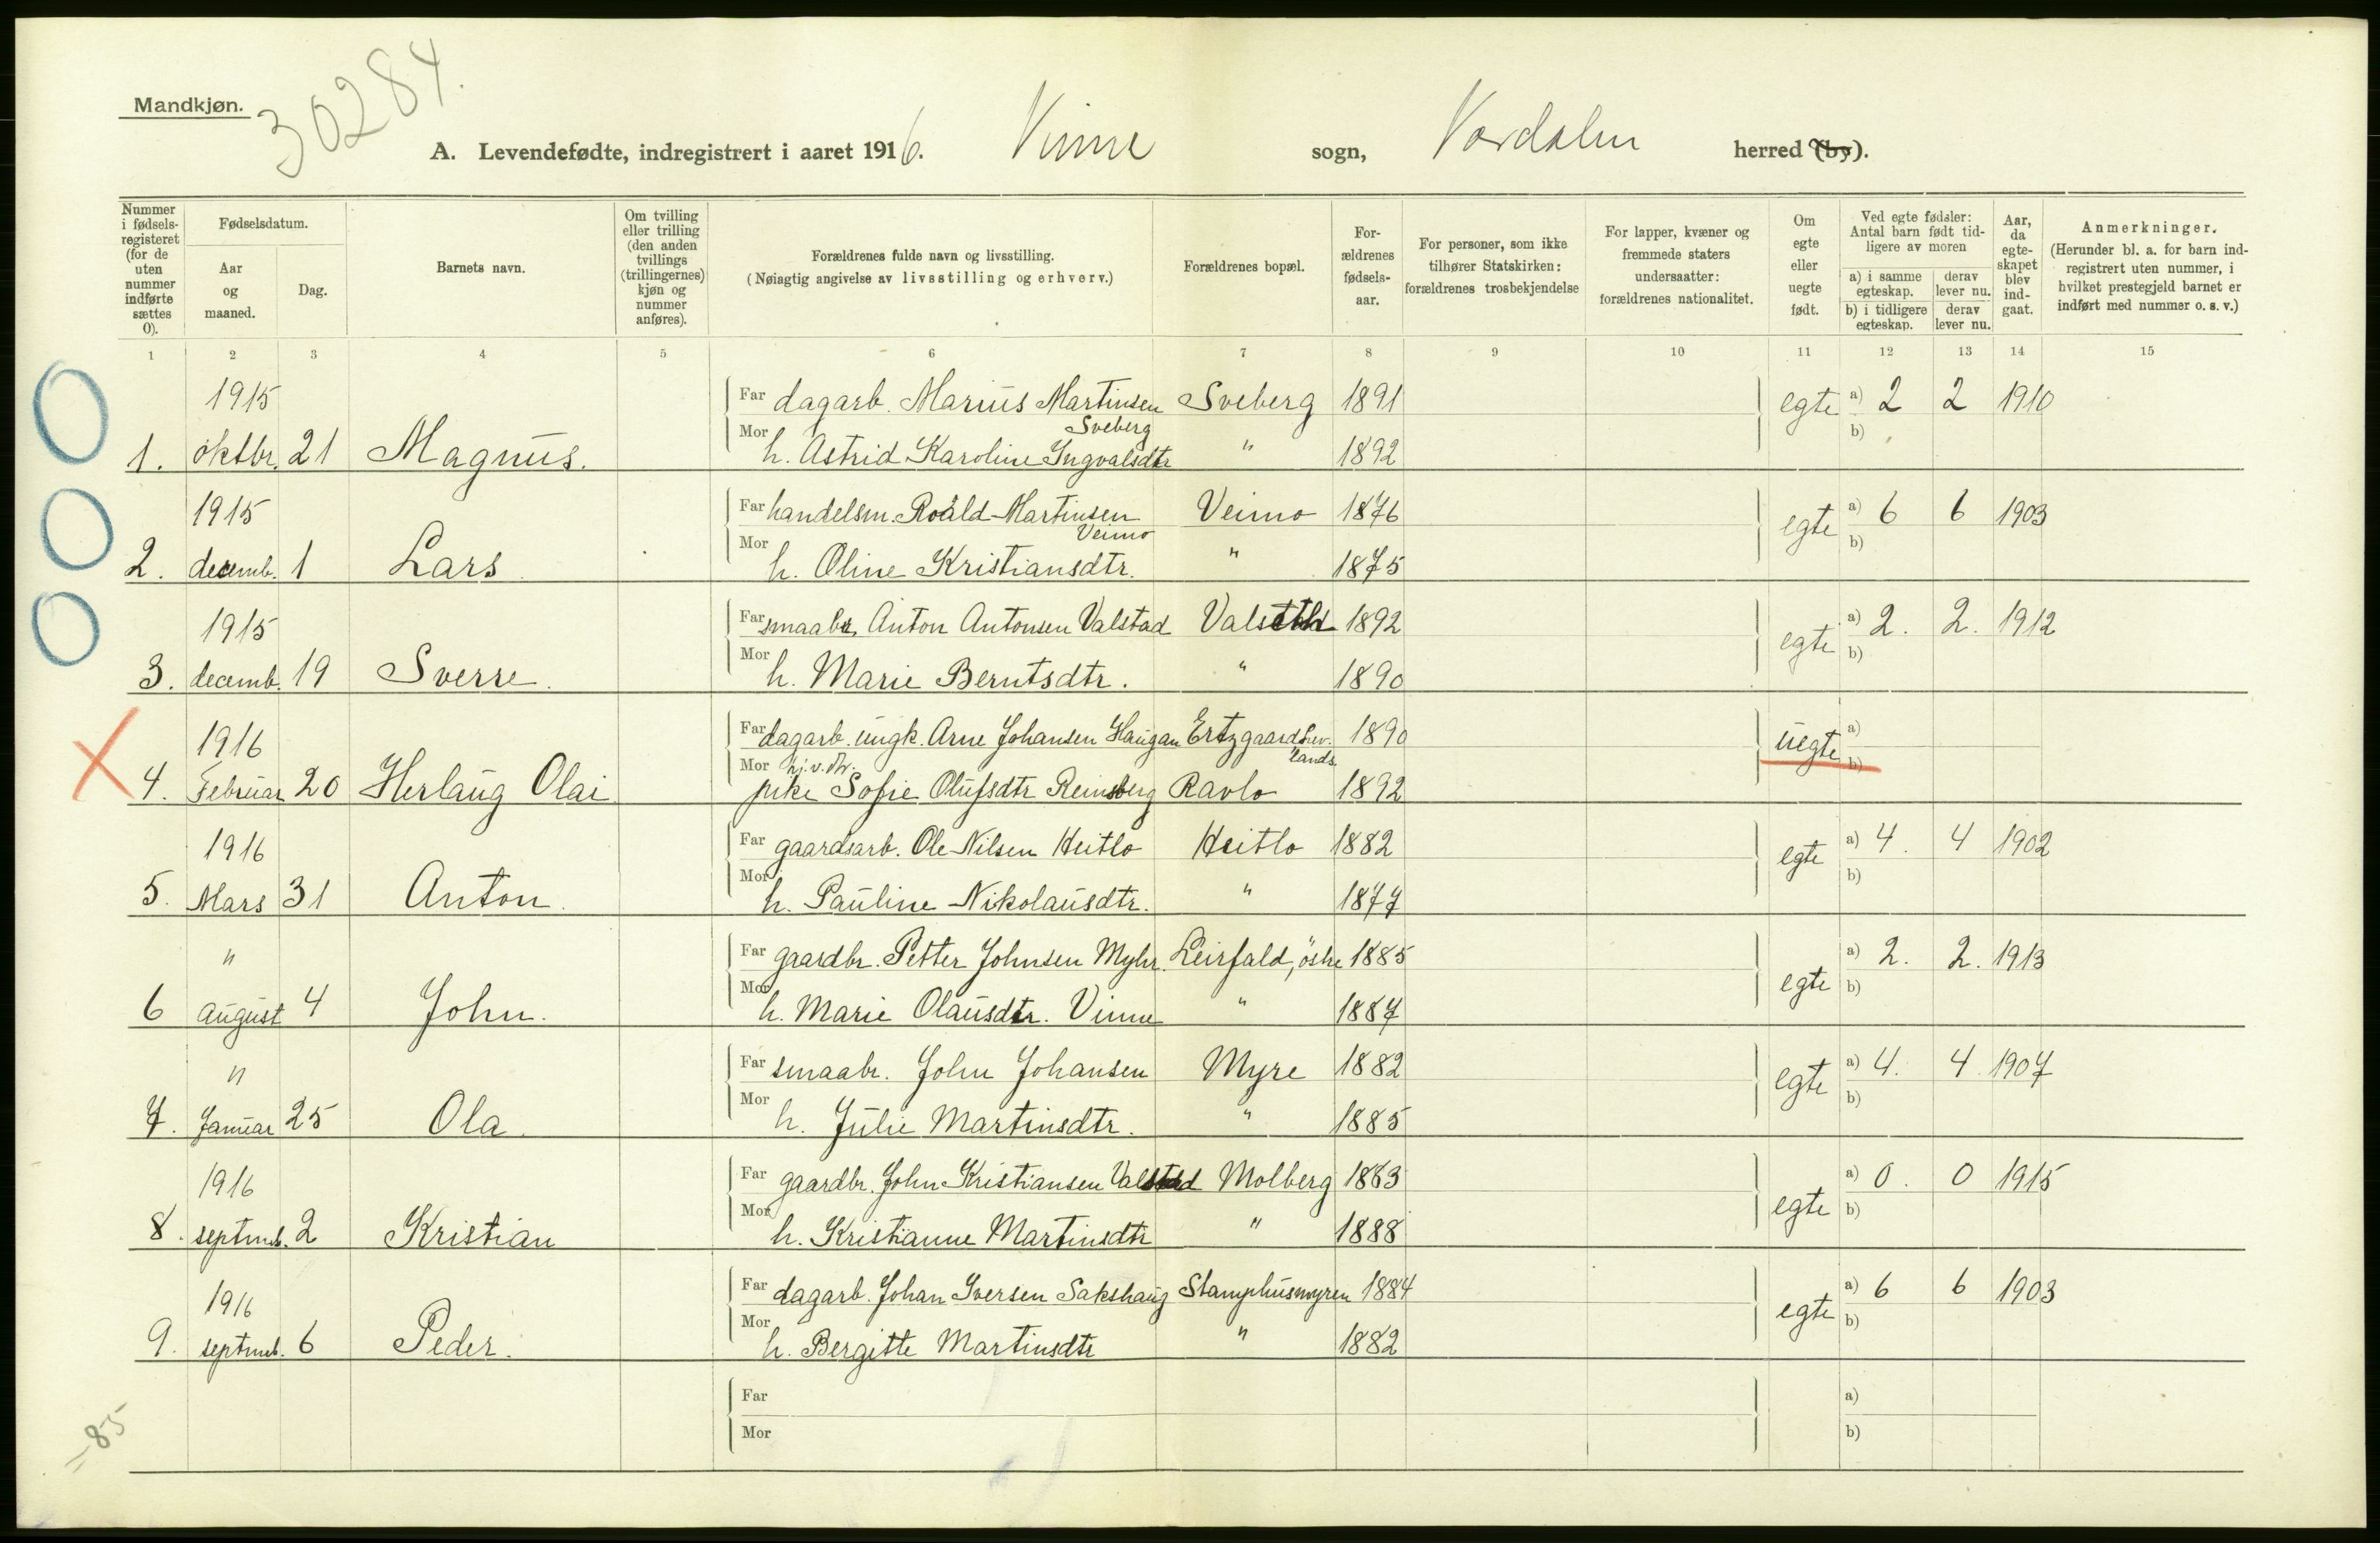 Mandkjøn.
30284.
A. Levendefødte, indregistrert i aaret 1916. Vinne sogn, Værdalen herred (by).
Nummer i fødsels-registeret (for de uten nummer indførte sættes 0).
Fødselsdatum.
Aar og maaned.
Dag.
Barnets navn.
Om tvilling eller trilling (den anden tvillings (trillingernes) kjøn og nummer anføres).
Forældrenes fulde navn og livsstilling.
(Nøiagtig angivelse av livsstilling og erhverv.)
Forældrenes bopæl.
For-ældrenes fødsels-aar.
For personer, som ikke tilhører Statskirken: forældrenes trosbekjendelse
For lapper, kvæner og fremmede staters undersaatter: forældrenes nationalitet.
Om egte eller uegte født.
Ved egte fødsler: Antal barn født tid-ligere av moren
a) i samme egteskap.
derav lever nu.
b) i tidligere egteskap.
derav lever nu.
Aar, da egte-skapet blev ind-gaat.
Anmerkninger.
(Herunder bl. a. for barn ind-registrert uten nummer, i hvilket prestegjeld barnet er indført med nummer o. s. v.)
1 2 3 4 5 6 7 8 9 10 11 12 13 14 15
1915 Far dagarb. Marius Martinsen Sveberg 1891 egte a) 2 2 1910
Sveberg
1. oktbr. 21 Magnus. Mor h. Astrid Karoline Ingvalsdtr " 1892 b)
1915 Far handelsm. Roald Martinsen Veimo 1876 egte a) 6 6 1903
Veimo
2. decemb. 1 Lars Mor h. Oline Kristiansdtr. " 1875 b)
1915 Far smaabr. Anton Antonsen Valstad 1892 egte a) 2. 2. 1912
3. decemb. 19 Sverre. Mor h. Marie Berntsdtr. " 1890 b)
1916 Far dagarb. ungk. Arne Johansen Haugan Ertzgaard 1890 uegte a)
4. Februar 20 Herlaug Olai Mor pike Sofie Olufsdtr Reinsberg Ravlo 1892 b)
1916 Far gaardsarb. Ole Nilsen Heitlo Heitlo 1882 egte a) 4. 4 1902
5. Mars 31 Anton. Mor h. Pauline Nikolausdtr. " 1877 b)
" Far gaardbr. Petter Johnsen Myhr. Leirfald, östre 1885 egte a) 2. 2. 1913
6 august 4 John. Mor h. Marie Olausdtr. Vinne " 1887 b)
" Far smaabr. John Johansen Myre 1882 egte a) 4. 4. 1907
7. Januar 25 Ola. Mor h. Julie Martinsdtr. " 1885 b)
1916 Far gaardbr. John Kristiansen Valstad Molberg 1883 egte a) 0. 0 1915
8. septmb. 2 Kristian Mor h. Kristianne Martinsdtr " 1888 b)
1916 Far dagarb. Johan Iversen Sakshaug Stamphusmyren 1884 egte a) 6 6 1903
9. septmb. 6 Peder. Mor h. Bergitte Martinsdtr " 1882 b)
Far a)
Mor b)
=85